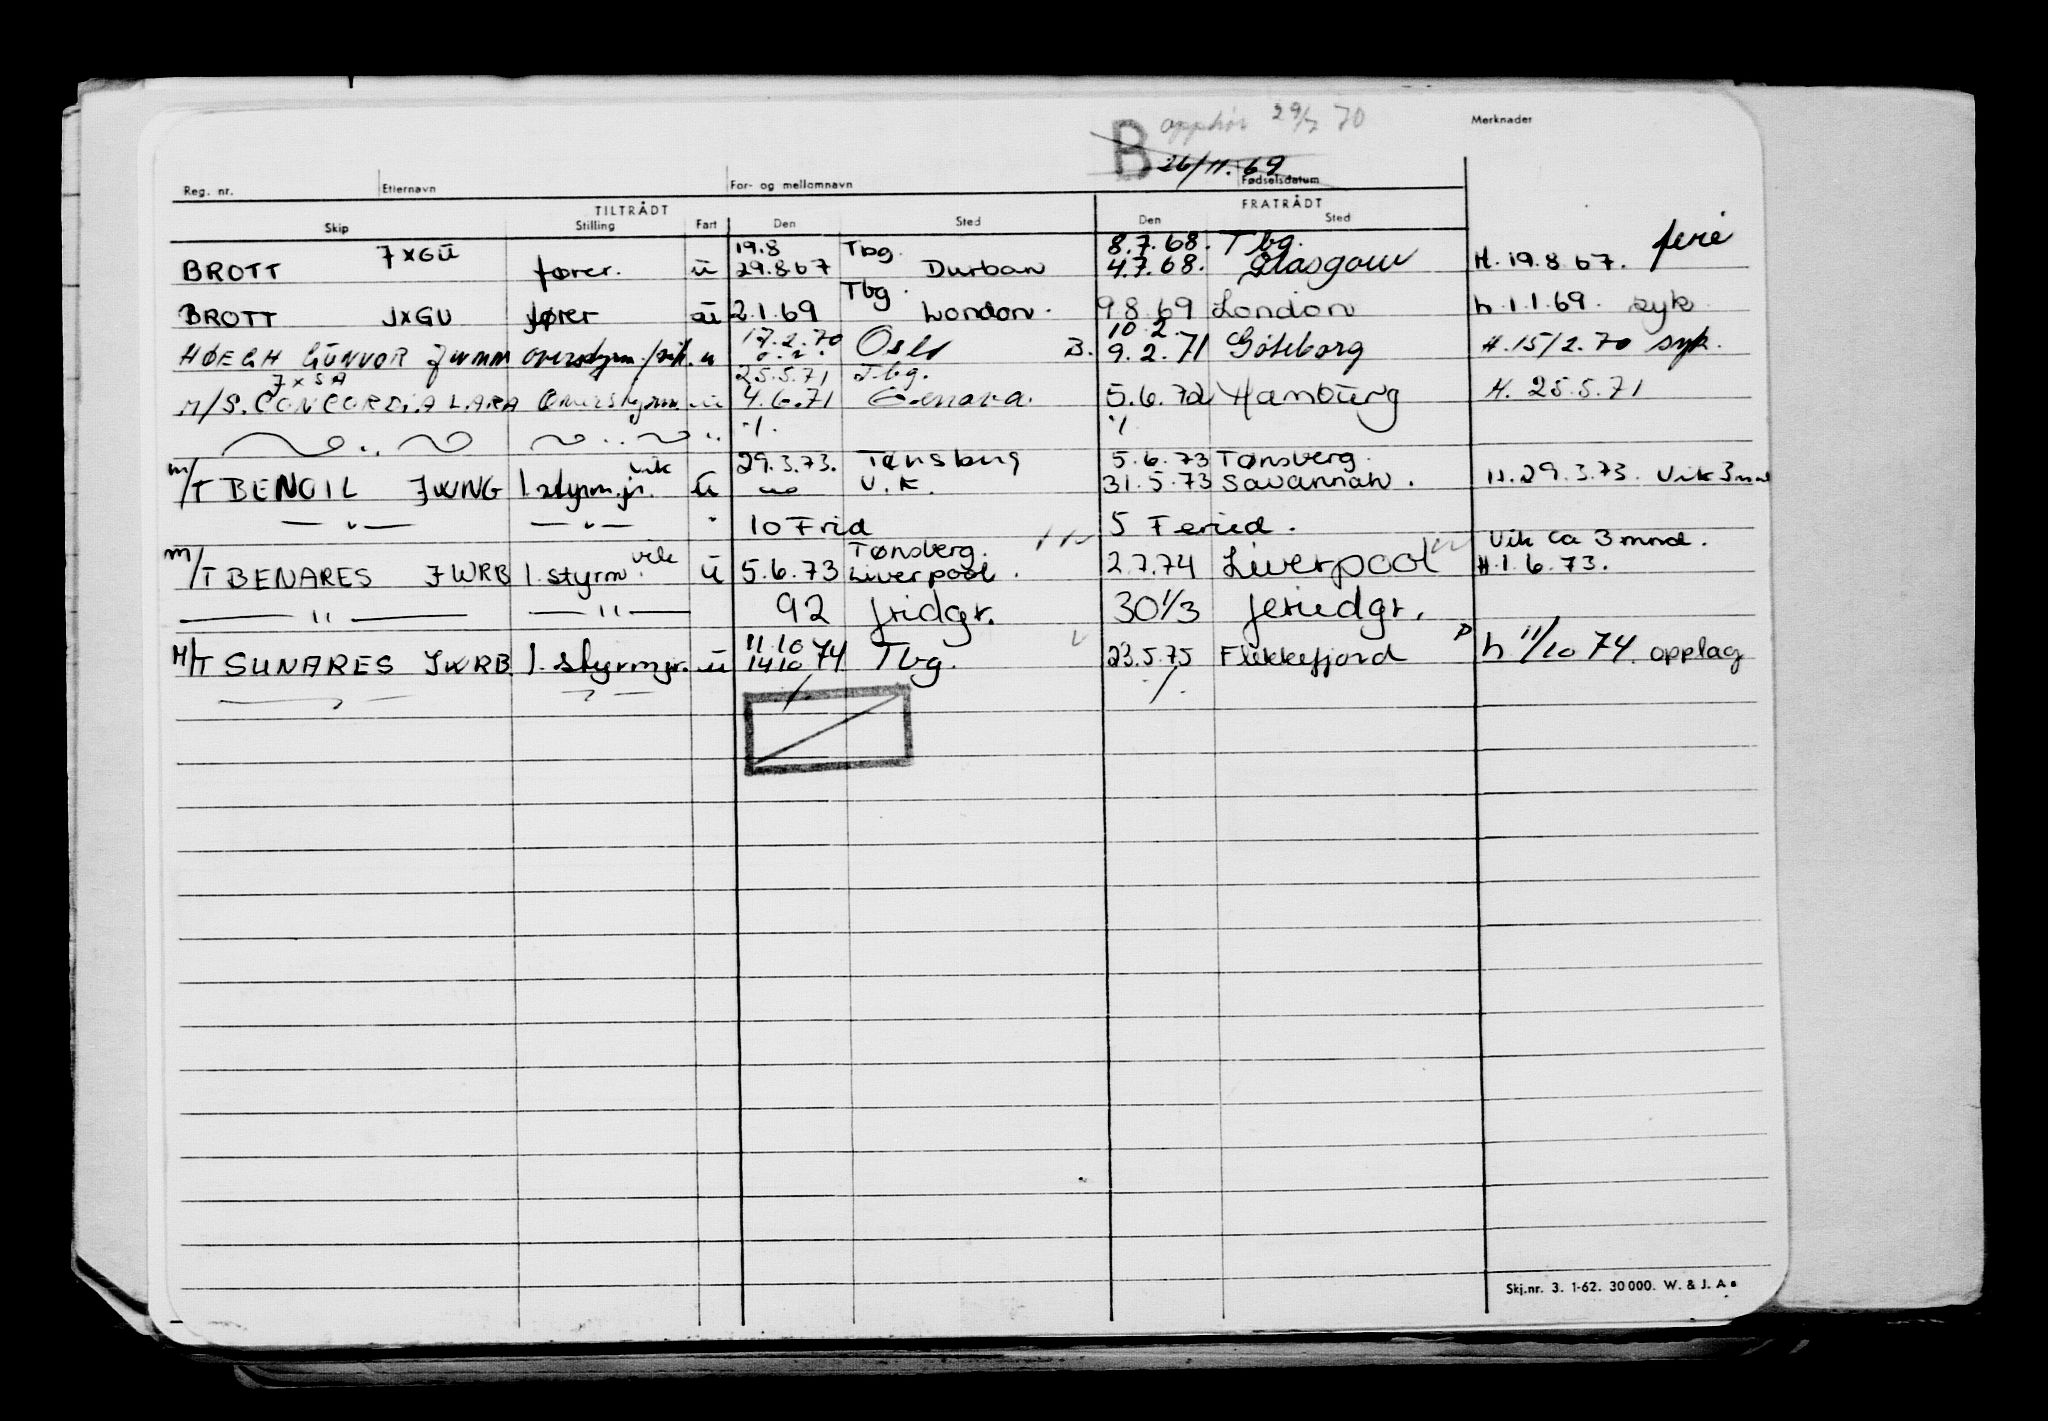 B opphør 29/7 70
Merknader
26/11.69
Reg. nr. Etternavn For- og mellomnavn Fødselsdatum
TILTRÅDT FRATRÅDT
Skip Stilling Fart Den Sted Den Sted
19.8 Tbg. 8.7.68. Tbg. ferie
BROTT JXGU fører. u 29.8.67 Durban 4.7.68. Glasgow H. 19.8.67.
Tbg.
BROTT JXGU fører u 2.1.69 London. 9.8.69 London h.1.1.69. syk
17.2.70 10.2.
HØEGH GUNVOR overstyrm./vik. u Oslo B. 9.2.71 Göteborg H.15/2.70 syk.
JXSA 25.5.71 Tbg.
M/S. CONCORDIA LARA Overstyrm. u 4.6.71 Genova. 5.6.72 Hamburg H. 25.5.71
./. ./.
vik 29.3.73. Tønsberg 5.6.73 Tønsberg.
m/T BENOIL JWNG 1.styrm.jr. u U.K. 31.5.73 Savannah. H.29.3.73. Vik 3 mnd
— " — — " — " 10 Frid 5 Feried.
vik Tønsberg. Vik ca 3 mnd.
m/T BENARES JWRB 1. styrm. u 5.6.73 Liverpool. 2.7.74 Liverpool H.1.6.73.
— " — — " — 92 fridgr. 30 1/3 feriedgr.
11.10
M/T SUNARES JWRB 1. styrm.jr. u 14.10 74 Tbg. 23.5.75 Flekkefjord P h 11/10 74. opplag
./. ./.
Skj.nr. 3. 1-62. 30 000. W. & J. A s